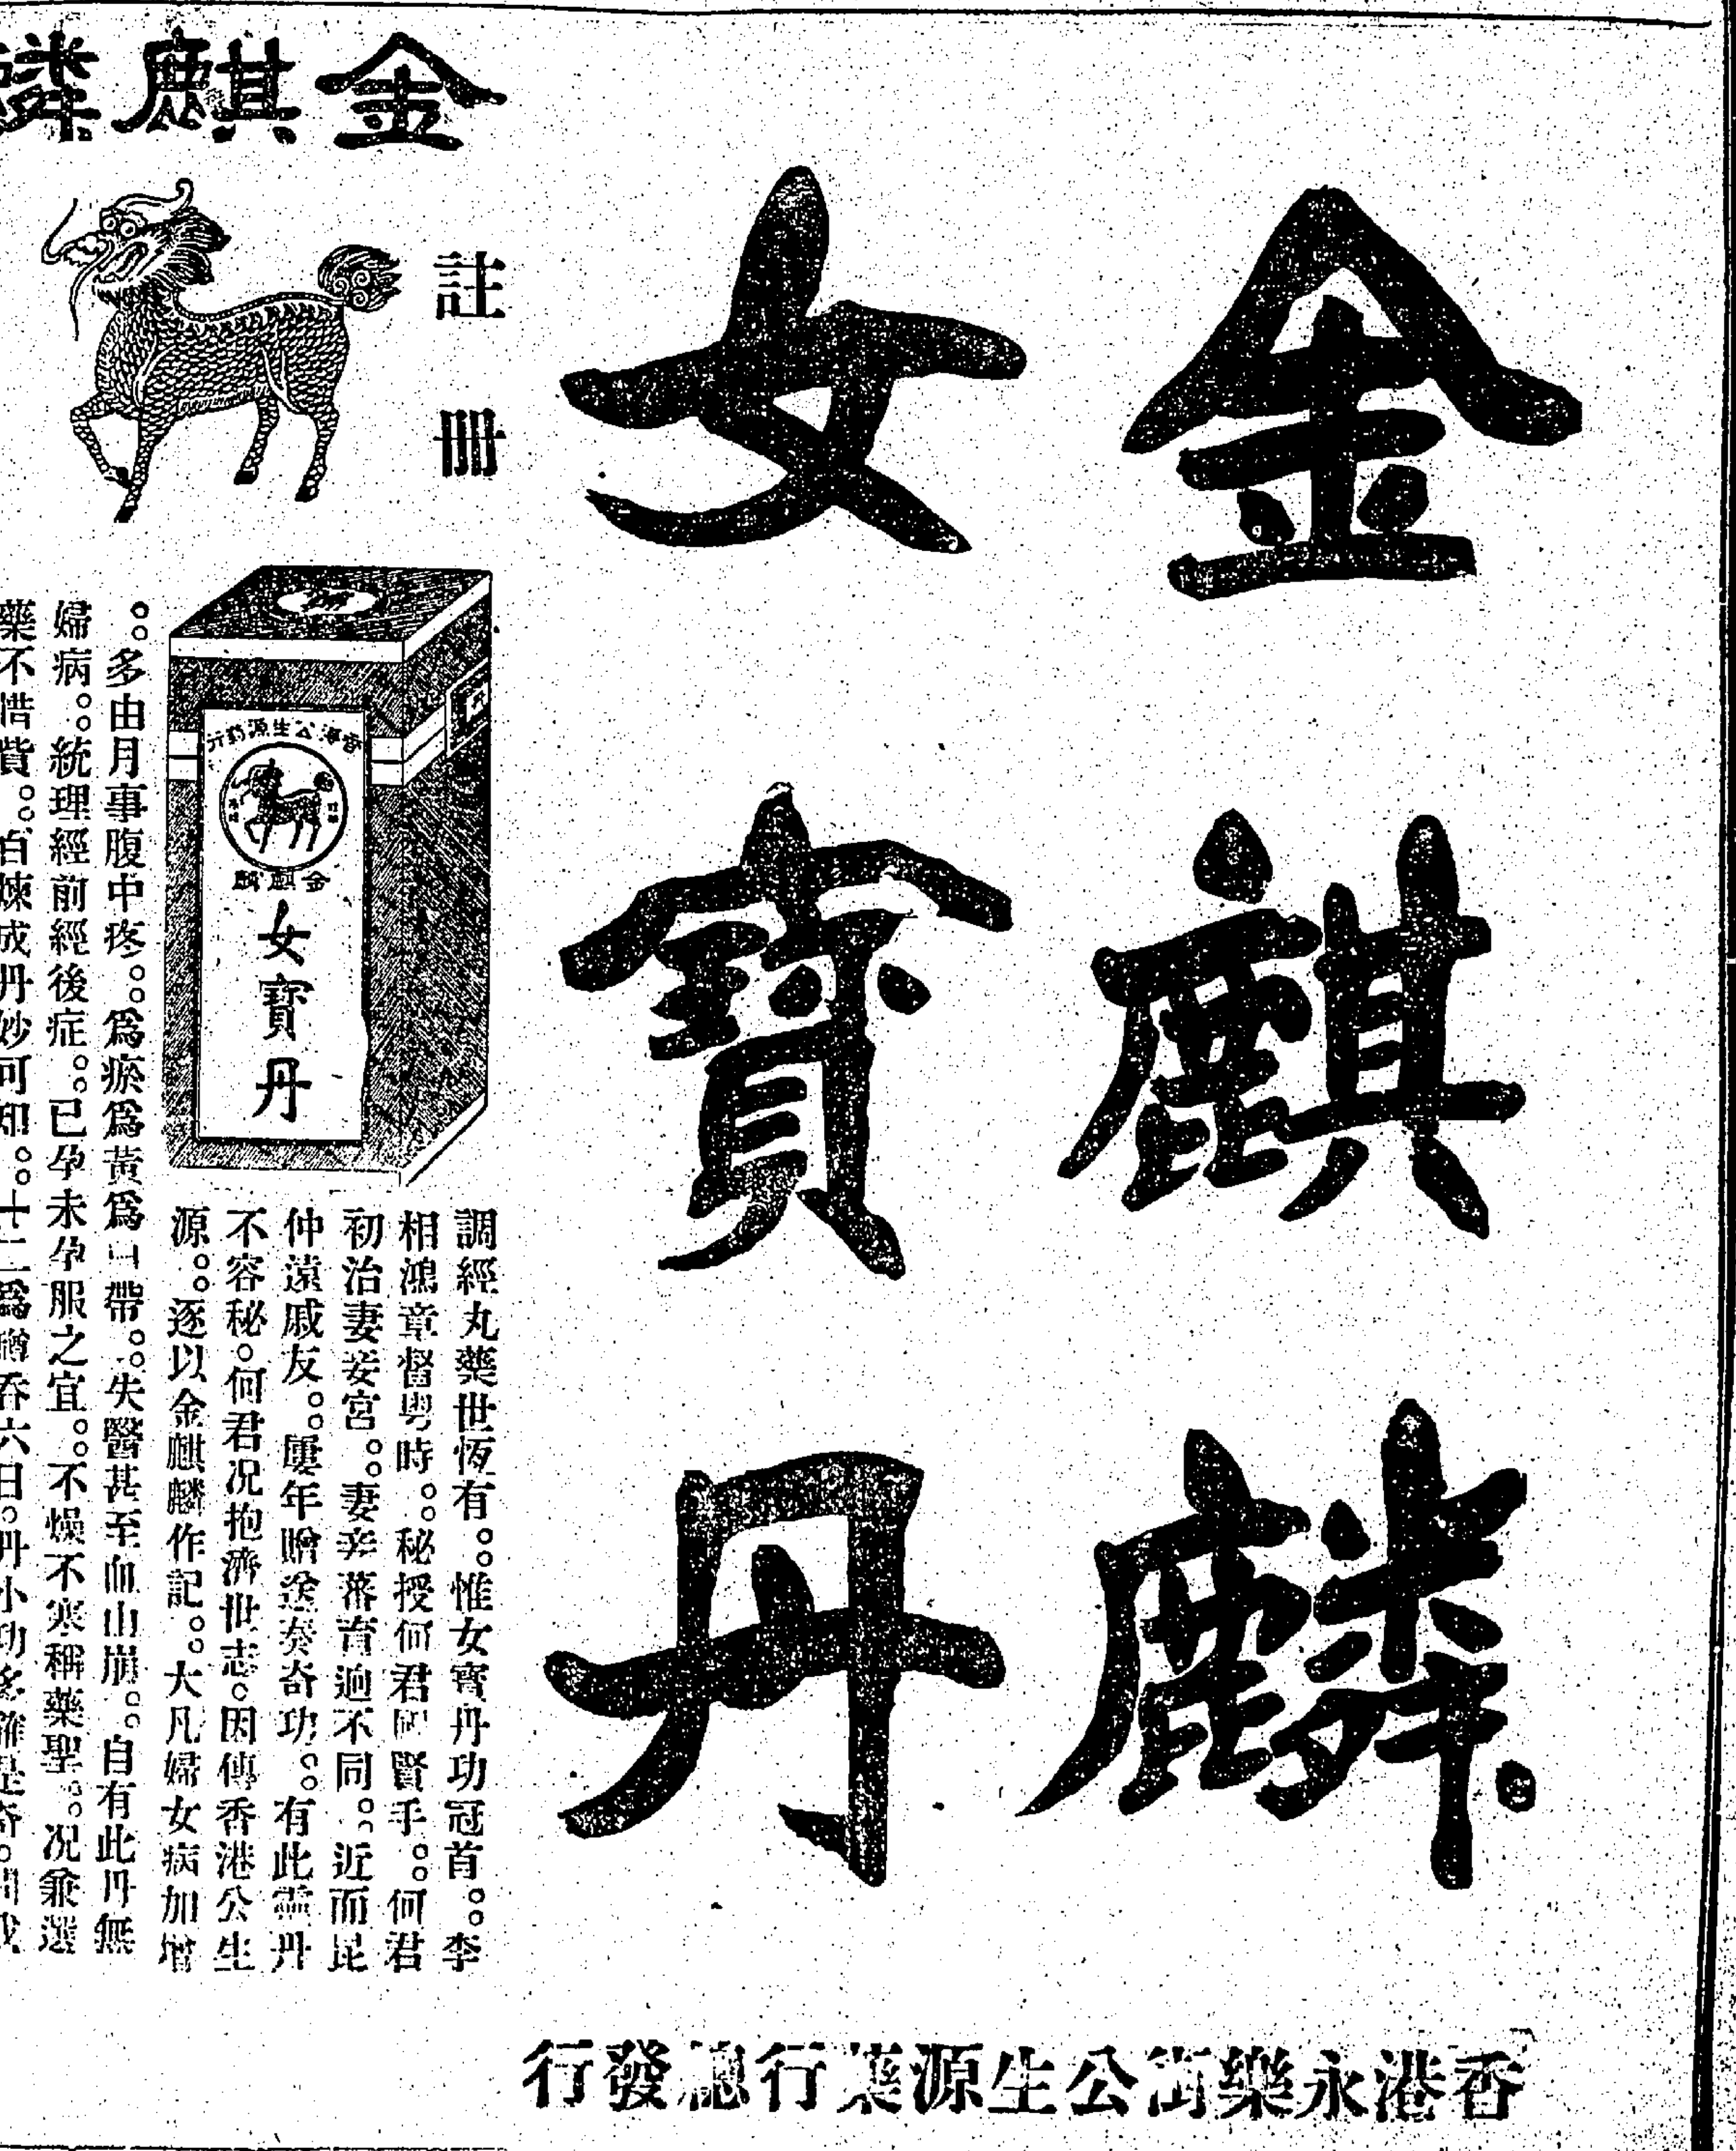 金麒麟
女寶丹
金麒麟
註冊
香港公生源葯行
金麒麟
女寶丹
調經丸藥世恆有。。惟女寶丹功冠首。。李
相鴻章督粵時。。秘授何君賢手。。何君
初治妻妾宮。。妻妾蕃育迥不同。。近而昆
仲遠戚友。。屢年贈送奏奇功。。有此靈丹
不容秘。何君况抱濟世志。因傳香港公生
源。。逐以金麒麟作記。。大凡婦女病加增
。。多由月事腹中疼。。爲瘀爲黃爲帶。。失醫甚至血山崩。。自有此丹無
婦病。。統理經前經後症。。已孕未孕服之宜。。不燥不寒稱藥聖。。况兼選
藥不惜貲。。百煉成丹妙可知。。十二爲吞六日。丹小功多確是奇。
香港永樂街公生源藥行總發行